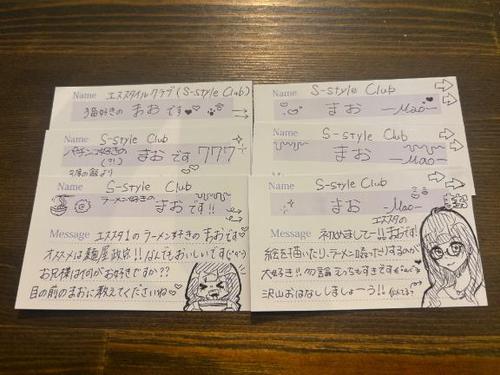 Name エススタイルクラブ(S-style Club)
猫好きの まお です
Name S-style Club
パチンコ好きの
(?!)
まお です 777
Name S-style Club
ラーメン好きの
まお です!!
Message エススタ1のラーメン好きのまおです♡
オススメは麺屋政宗!!なんでもおいしいです
お兄様は何がお好きですか??
目の前のまおに教えてくださいね♡
Name S-style Club
まお -Mao-
Name S-style Club
まお -Mao-
Name S-style Club
まお -Mao-
Message エススタの
初めましてー!!まおです!
絵を描いたり、ラーメン啜ったりするのが
大好き!!勿論えっちもすきです
沢山おはなししましょーう!! 似てる?